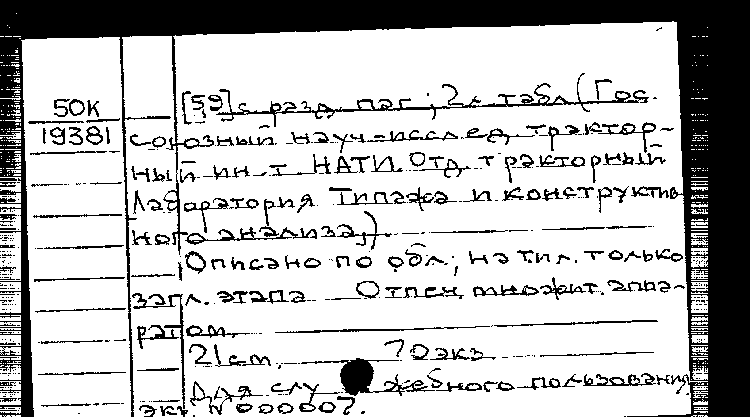 50К
19381
[59] с разд. паг.; 2 л. табл (Гос.
союзный науч-исслед трактор-
ный ин-т НАТИ. Отд. тракторный
Лаборатория Типажа и конструктив
ного анализа).
Описано по обл; на тил. только
загл. этапа Отпеч. множит. аппа-
ратом.
21см. 70экз
Для служебного пользования
экз. N000007.